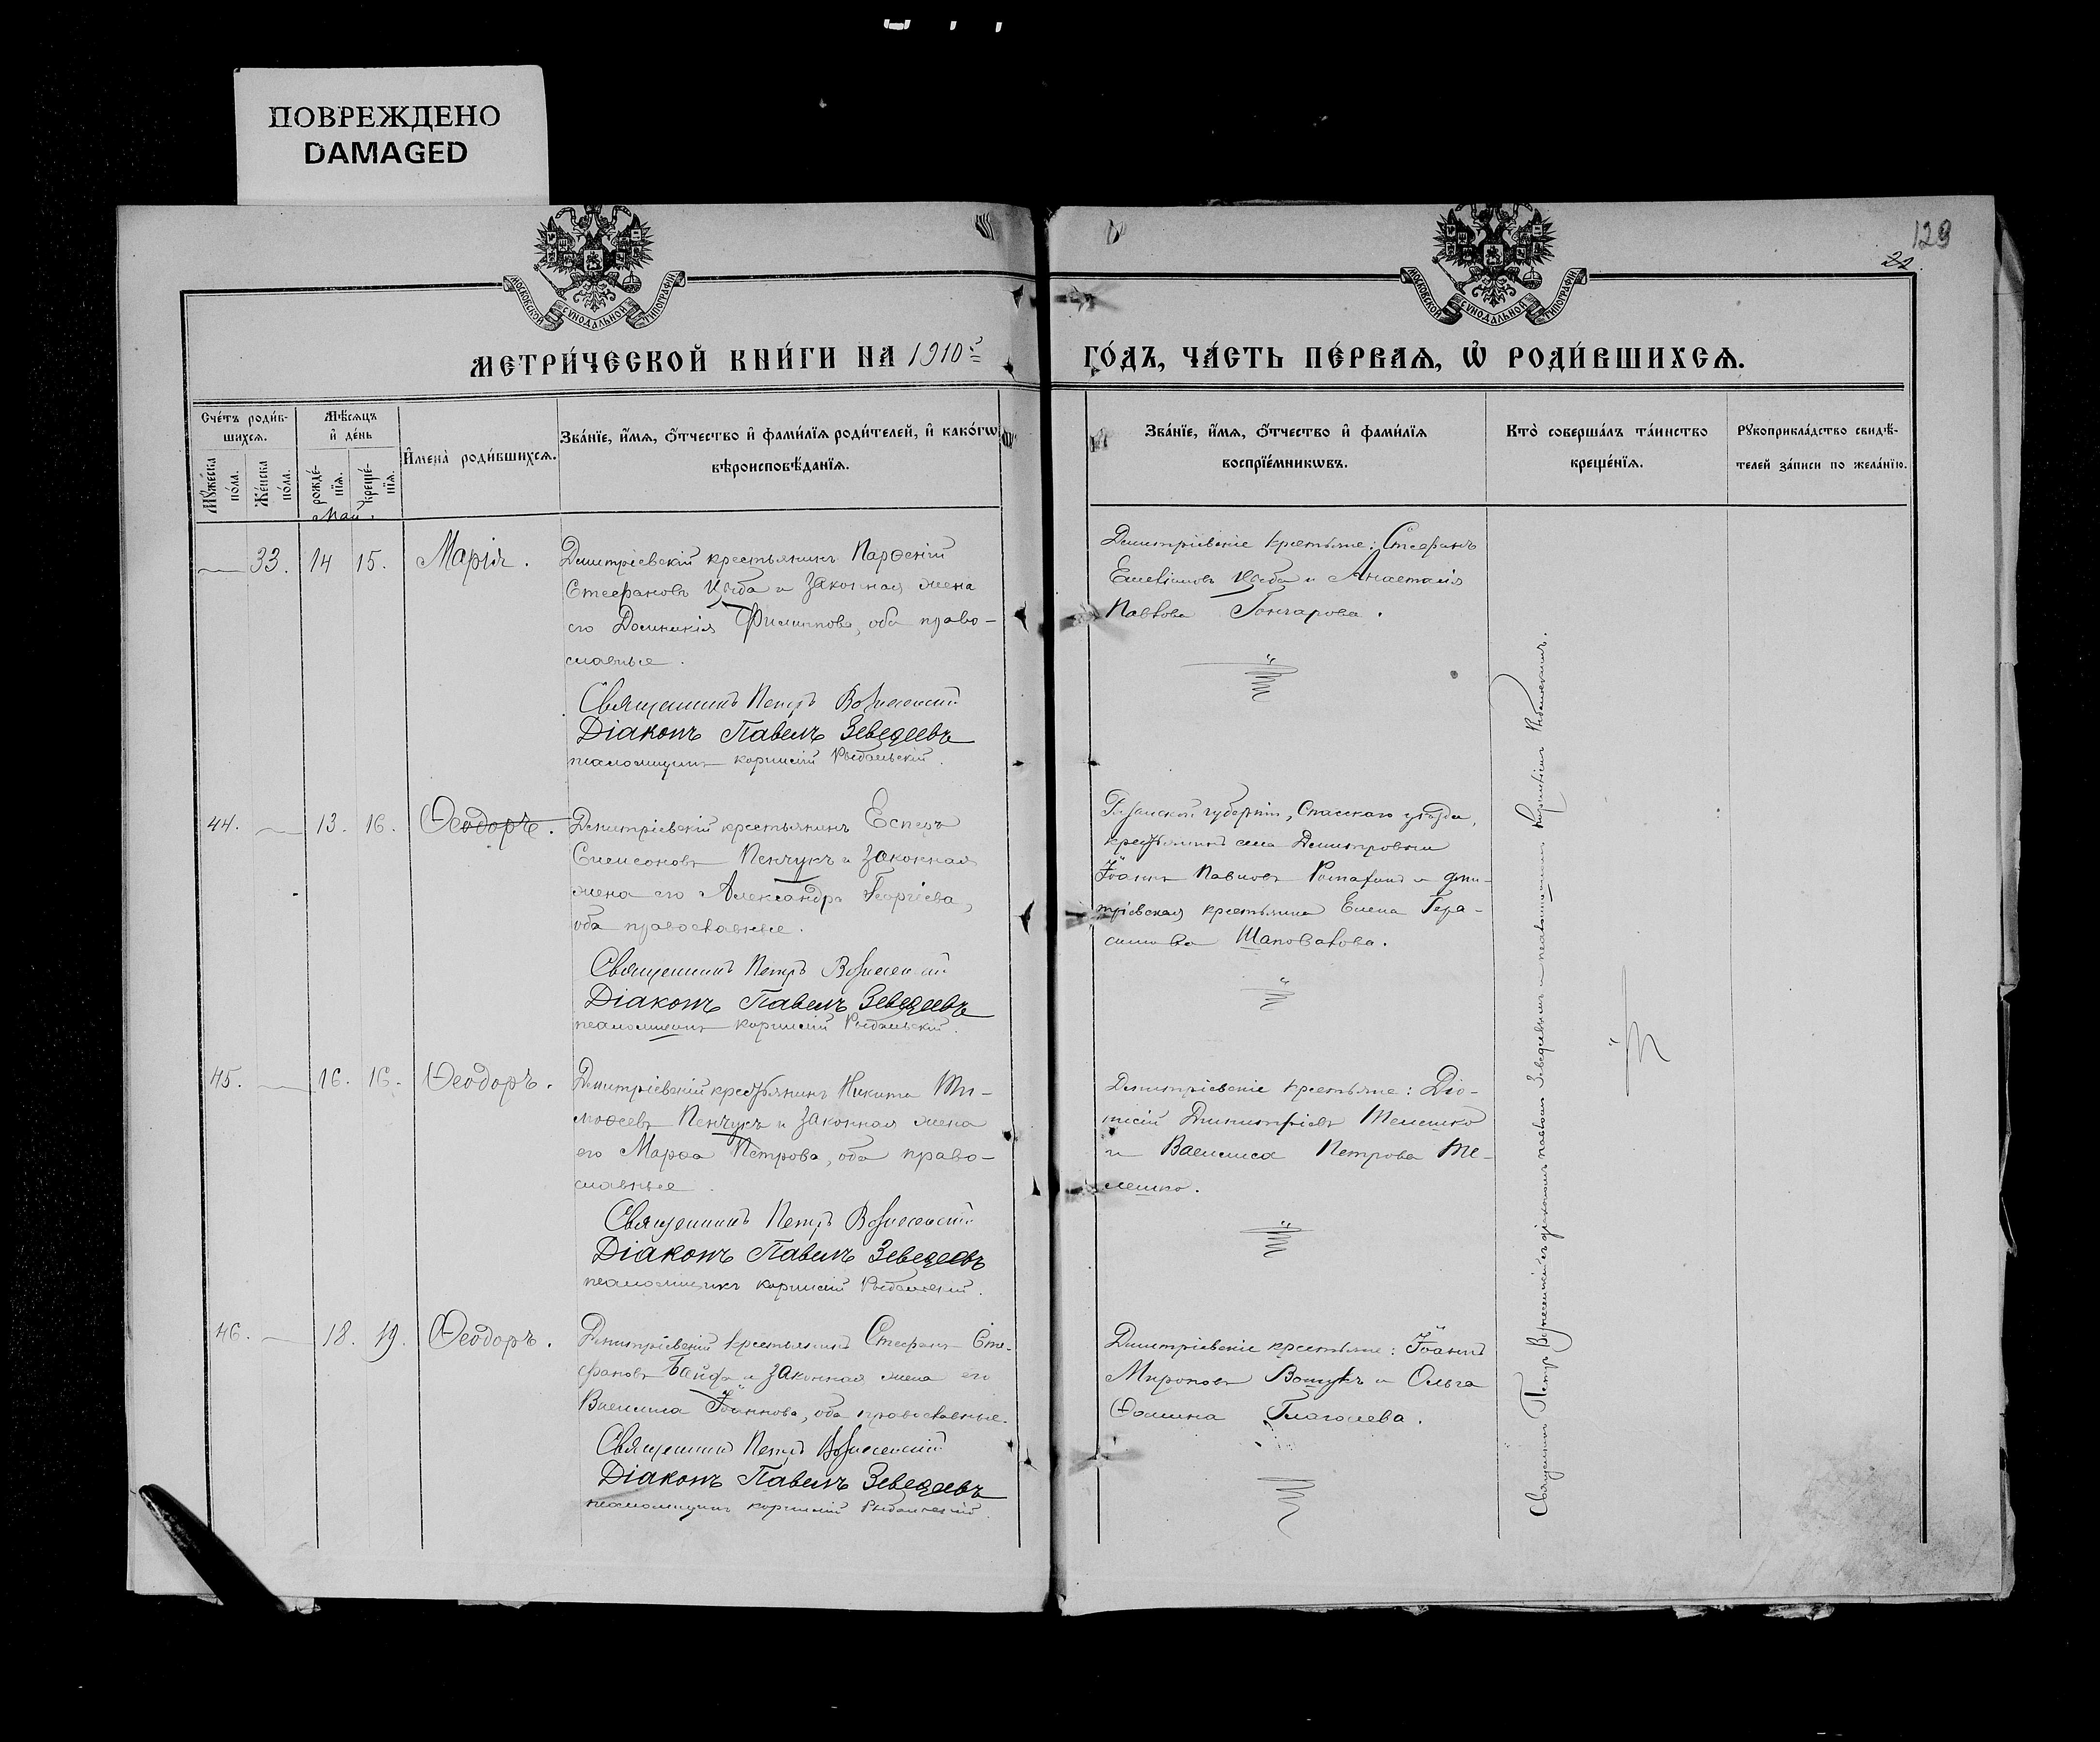 ПОВРЕЖДЕНО
DAMAGED
129
22
МОСКОВСКОЙ СѴНОДАЛЬНОЙ ТИПОГРАФІИ
МОСКОВСКОЙ СѴНОДАЛЬНОЙ ТИПОГРАФІИ
МЕТРИ́ЧЕСКОЙ КНИ́ГИ НА 1910 г
ГО́ДЪ, ЧА́СТЬ ПЕ́РВАѦ, Ѡ҆ РОДИ́ВШИХСѦ.
Сче́тъ роди́в-
шихсѧ.
Мꙋ́жеска по́ла.
Же́нска по́ла.
Мѣ́сѧцъ
и҆ де́нь
рожде́-
нїѧ.
креще́-
нїѧ.
И҆мена̀ роди́вшихсѧ.
Зва́нїе, и҆́мѧ, ѻ҆́тчество и҆ фами́лїѧ роди́телей, и҆ како́гѡ
вѣроисповѣ́данїѧ.
Зва́нїе, и҆́мѧ, ѻ҆́тчество и҆ фами́лїѧ
воспрїе́мникѡвъ.
Кто̀ соверша́лъ та́инство
креще́нїѧ.
Рꙋкоприкла́дство свидѣ́-
телей за́писи по жела́нїю.
Май.
33. 14 15. Марія.
Димитріевскій крестьянинъ Парѳеній
Стефановъ Цыба и законная жена
его Домникія Филиппова, оба право-
славные.
Священникъ Петръ Вознесенскій
Діаконъ Павелъ Зеведеевъ
псаломщикъ Корнилій Рыбальскій.
Димитріевскіе крестьяне: Стефанъ
Емеліановъ Цыба и Анастасія
Павлова Гончарова.
44. 13. 16. Ѳеодоръ.
Димитріевскій крестьянинъ Есперъ
Симеоновъ Пенчукъ и законная
жена его Александра Георгіева,
оба православные.
Священникъ Петръ Вознесенскій
Діаконъ Павелъ Зеведеевъ
псаломщикъ Корнилій Рыбальскій.
губерніи, Спасскаго уѣзда,
крестьянинъ села Димитровки
Іоаннъ Павловъ и Дми-
тріевская крестьянка Елена Гера-
симова Шаповалова.
45. 16. 16. Ѳеодоръ.
Димитріевскій крестьянинъ Никита Ти-
моѳеевъ Пенчукъ и законная жена
его Марѳа Петрова, оба право-
славные.
Священникъ Петръ Вознесенскій
Діаконъ Павелъ Зеведеевъ
псаломщикъ Корнилій Рыбальскій.
Димитріевскіе крестьяне: Діо-
нисій Димитріевъ Телешко
и Василиса Петрова Те-
лешко.
46. 18. 19. Ѳеодоръ.
Димитріевскій крестьянинъ Стефанъ Сте-
фановъ Байда и законная жена его
Василиса Іоаннова, оба православные.
Священникъ Петръ Вознесенскій
Діаконъ Павелъ Зеведеевъ
псаломщикъ Корнилій Рыбальскій.
Димитріевскіе крестьяне: Іоаннъ
Мироновъ и Ольга
Ѳомина Глаголева.
Священникъ Петръ Вознесенскій съ діакономъ Павломъ Зеведеевымъ и псаломщикомъ Корниліемъ Рыбальскимъ.